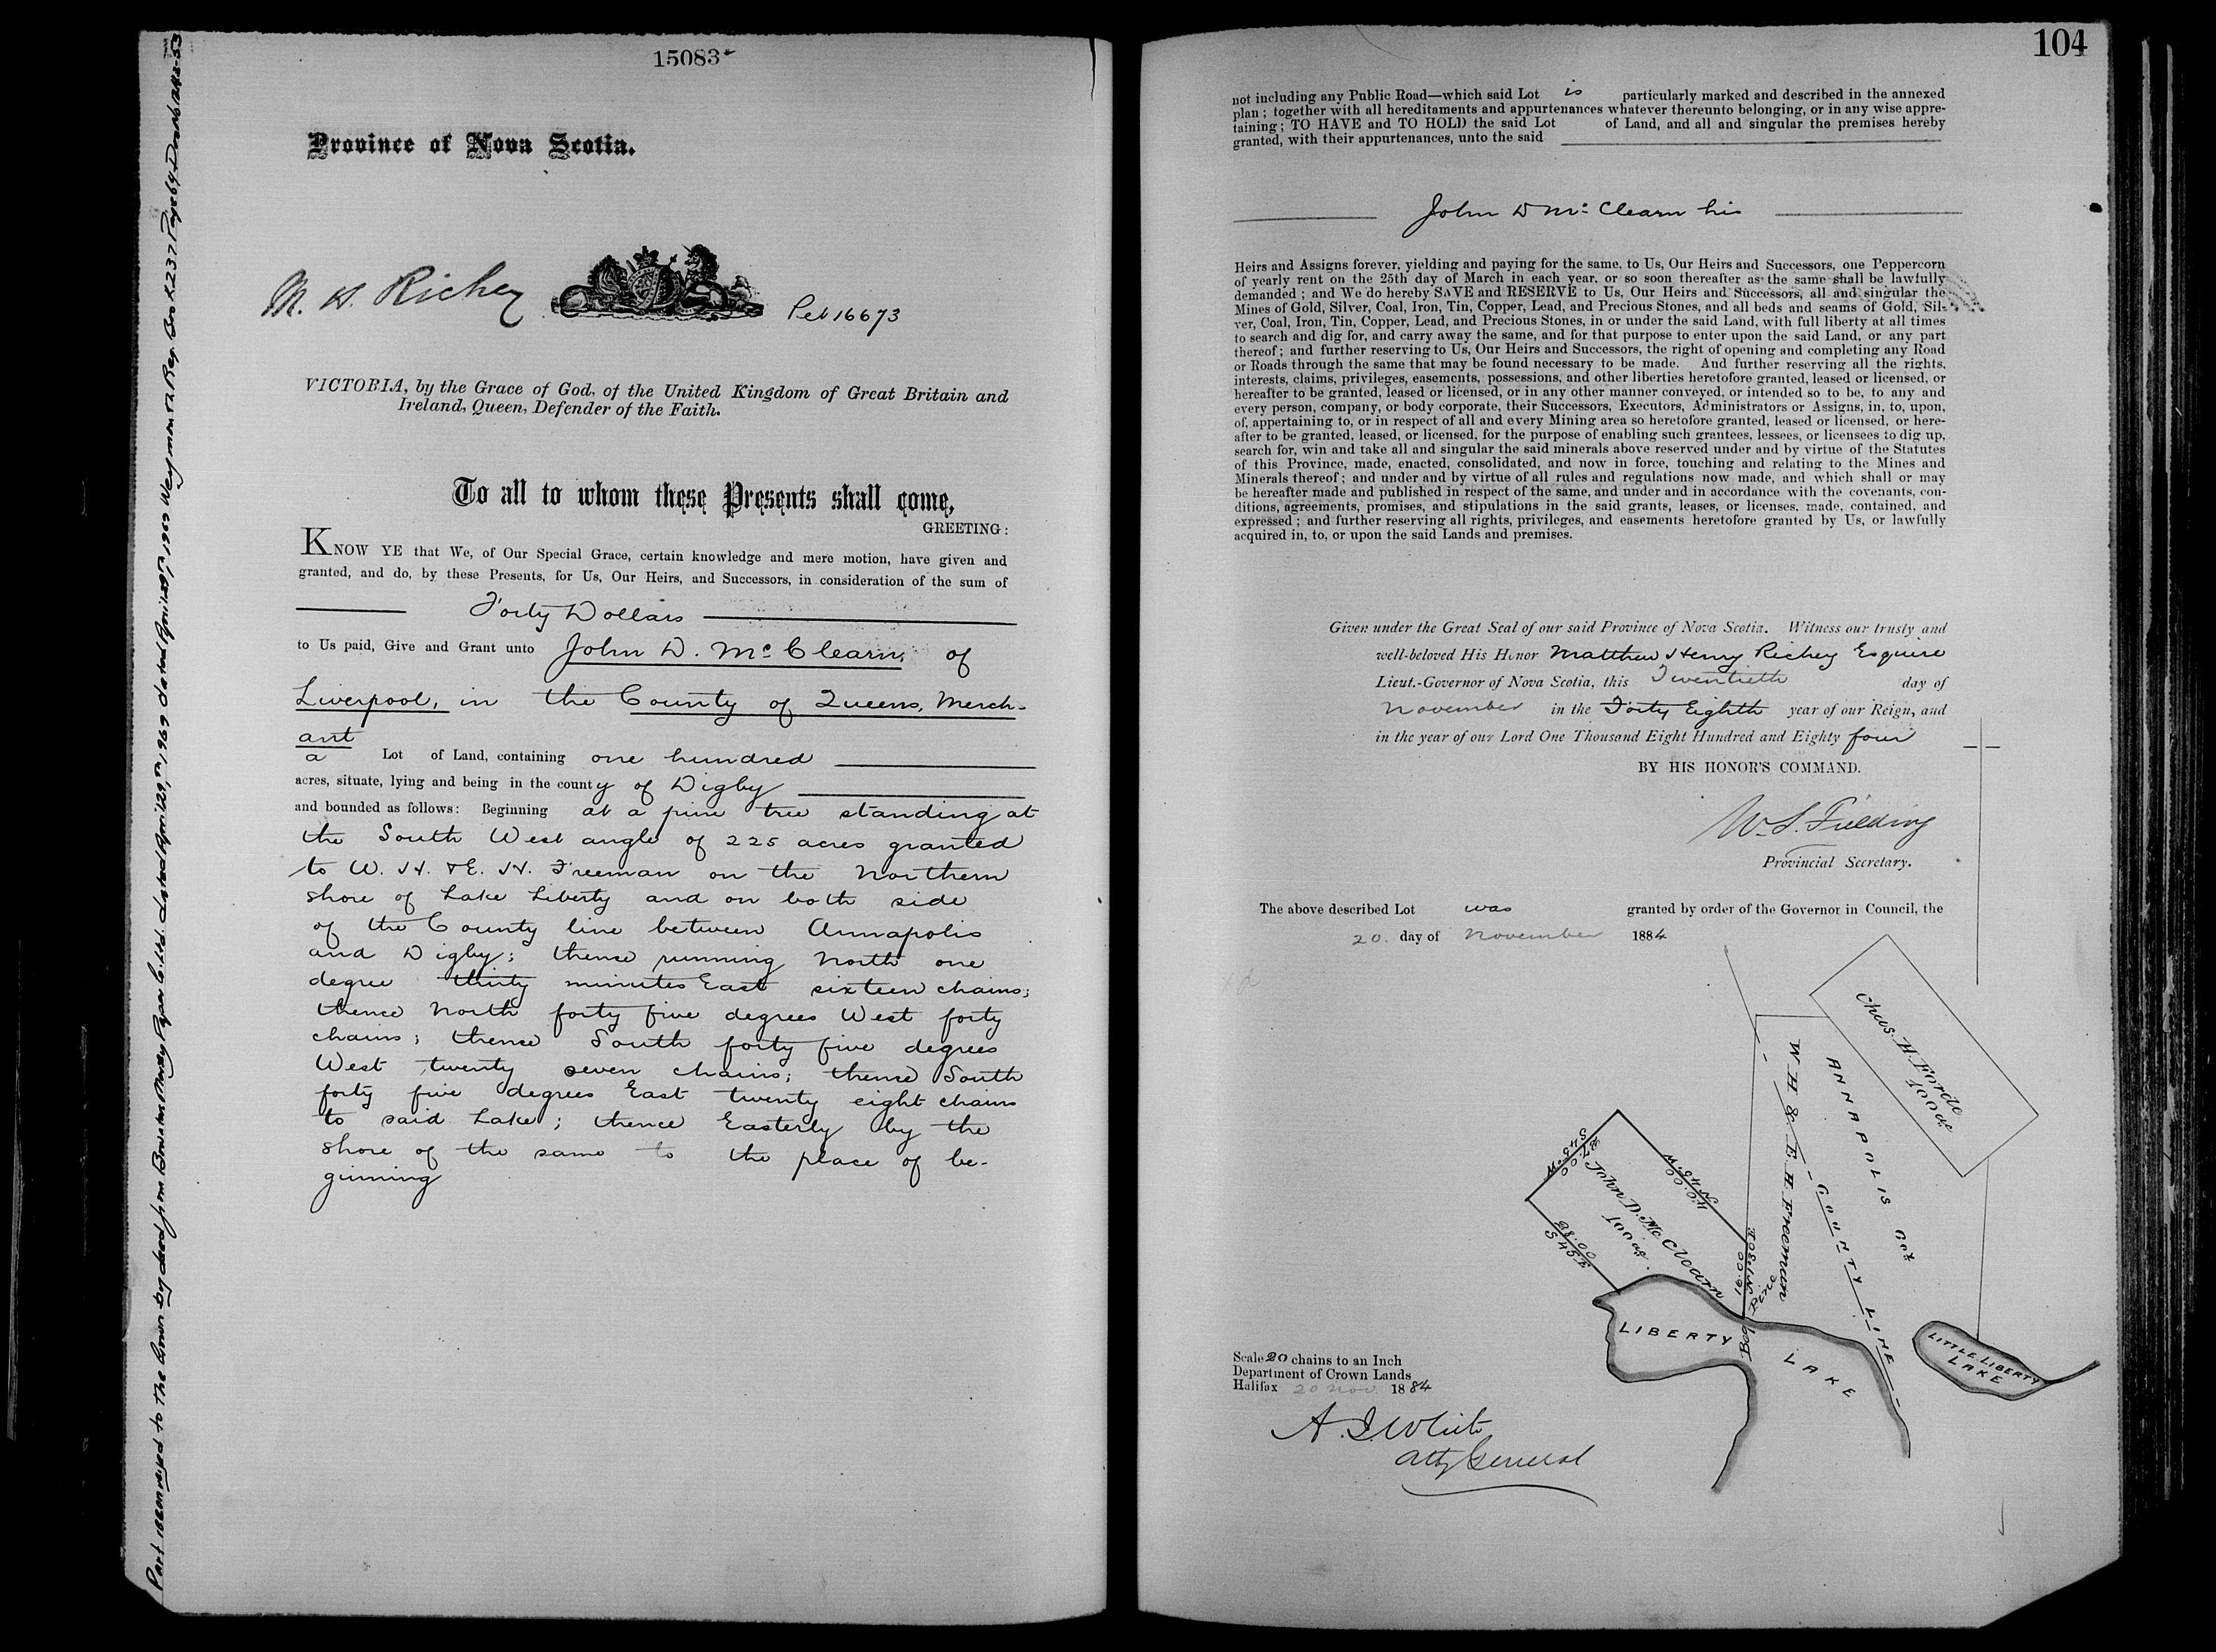 15083
Province of Nova Scotia.
M. H. Richey
Pet 16673
VICTORIA, by the Grace of God, of the United Kingdom of Great Britain and
Ireland, Queen, Defender of the Faith.
To all to whom these Presents shall come,
GREETING:
KNOW YE that We, of Our Special Grace, certain knowledge and mere motion, have given and
granted, and do, by these Presents, for Us, Our Heirs, and Successors, in consideration of the sum of
Forty Dollars
to Us paid, Give and Grant unto John D. McClearn, of
Liverpool, in the County of Queens, Merch-
ant
a Lot of Land, containing one hundred
acres, situate, lying and being in the county of Digby
and bounded as follows: Beginning at a pine tree standing at
the South West angle of 225 acres granted
to W. H. & E. H. Freeman on the Northern
shore of Lake Liberty and on both side
of the County line between Annapolis
and Digby; thense running North one
degree thirty minutes East sixteen chains;
thence North forty five degrees West forty
chains; thense South forty five degrees
West twenty seven chains; thense South
forty five degrees East twenty eight chains
to said Lake; thence Easterly by the
shore of the same to the place of be-
ginning
Part reconveyed to the Crown by deed from Bowater Mersey Paper Co. Ltd. dated April 29th, 1969 Weymouth Reg. Book 237 Page 69
104
not including any Public Road—which said Lot is particularly marked and described in the annexed
plan; together with all hereditaments and appurtenances whatever thereunto belonging, or in any wise appre-
taining; TO HAVE and TO HOLD the said Lot of Land, and all and singular the premises hereby
granted, with their appurtenances, unto the said
John D McClearn his
Heirs and Assigns forever, yielding and paying for the same, to Us, Our Heirs and Successors, one Peppercorn
of yearly rent on the 25th day of March in each year, or so soon thereafter as the same shall be lawfully
demanded; and We do hereby SAVE and RESERVE to Us, Our Heirs and Successors, all and singular the
Mines of Gold, Silver, Coal, Iron, Tin, Copper, Lead, and Precious Stones, and all beds and seams of Gold, Sil-
ver, Coal, Iron, Tin, Copper, Lead, and Precious Stones, in or under the said Land, with full liberty at all times
to search and dig for, and carry away the same, and for that purpose to enter upon the said Land, or any part
thereof; and further reserving to Us, Our Heirs and Successors, the right of opening and completing any Road
or Roads through the same that may be found necessary to be made. And further reserving all the rights,
interests, claims, privileges, easements, possessions, and other liberties heretofore granted, leased or licensed, or
hereafter to be granted, leased or licensed, or in any other manner conveyed, or intended so to be, to any and
every person, company, or body corporate, their Successors, Executors, Administrators or Assigns, in, to, upon,
of, appertaining to, or in respect of all and every Mining area so heretofore granted, leased or licensed, or here-
after to be granted, leased, or licensed, for the purpose of enabling such grantees, lessees, or licensees to dig up,
search for, win and take all and singular the said minerals above reserved under and by virtue of the Statutes
of this Province, made, enacted, consolidated, and now in force, touching and relating to the Mines and
Minerals thereof; and under and by virtue of all rules and regulations now made, and which shall or may
be hereafter made and published in respect of the same, and under and in accordance with the covenants, con-
ditions, agreements, promises, and stipulations in the said grants, leases, or licenses, made, contained, and
expressed; and further reserving all rights, privileges, and easements heretofore granted by Us, or lawfully
acquired in, to, or upon the said Lands and premises.
Given under the Great Seal of our said Province of Nova Scotia. Witness our trusty and
well-beloved His Honor Matthew Henry Richey Esquire
Lieut.-Governor of Nova Scotia, this Twentieth day of
November in the Forty Eighth year of our Reign, and
in the year of our Lord One Thousand Eight Hundred and Eighty four
BY HIS HONOR'S COMMAND.
W. S. Fielding
Provincial Secretary.
The above described Lot was granted by order of the Governor in Council, the
20. day of November 1884
Chas. H. Forde
100 ac
W H & E. H. Freeman
ANNAPOLIS Co.y
COUNTY LINE
S 45 W
27.00
N 45 W
40.00
John D. McClearn
100 ac.
28.00
S 45 E
16.00
N 1°30 E
Beg. Pine
LIBERTY LAKE
LITTLE LIBERTY
LAKE
Scale 20 chains to an Inch
Department of Crown Lands
Halifax 20 Nov. 1884
A. J. White
Atty General